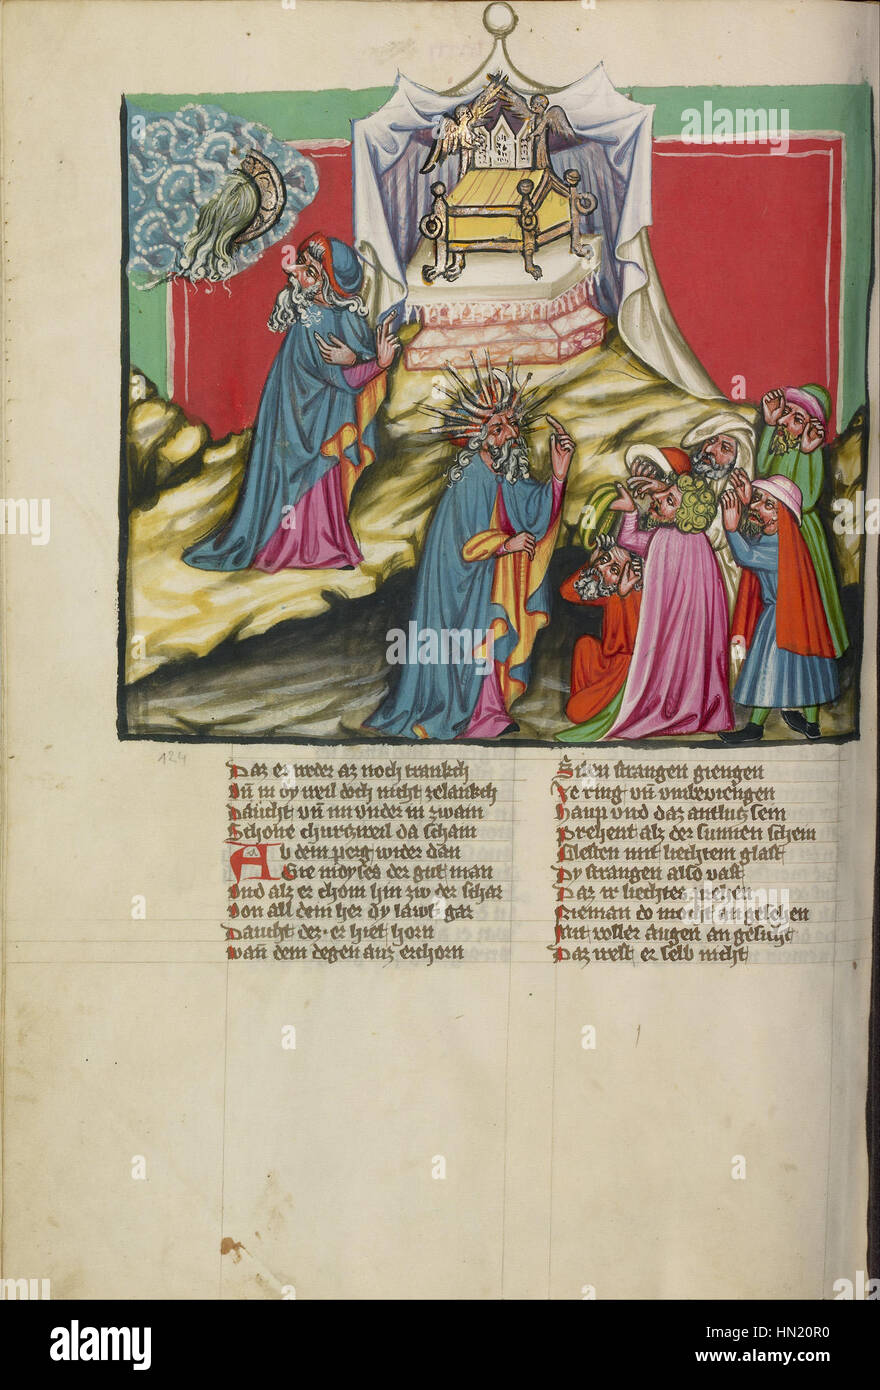 124
Daz er weder az noch trankch
Im in dy weil doch nicht zelankch
Daucht vnd im vnder in zwain
Schone churczweil da scham
Ab dem perg wider dan
Gie moyses der gut man
Vnd alz er chom hin zw der schar
Von all dem her dy lawt gar
Daucht der er hiet horn
Wan dem degen auz erchorn
Silen strangen giengen
Ze ring vnd vmbeviengen
Haup vnd daz antlutz sein
Prehent alz der sunnen schein
Glesten mit liechtem glast
Dy strangen also vast
Daz ir liechtes prehen
Nieman do mocht an gesehen
Mit voller augen an gesicht
Daz west er selb nicht
alamy
Image ID: HN20R0
www.alamy.com